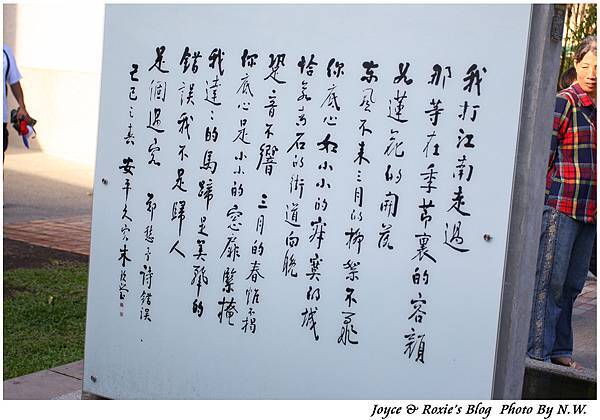 我打江南走過
那等在季節裏的容顏
如蓮花的開落
東風不來三月的柳絮不飛
你底心如小小的寂寞的城
恰若青石的街道向晚
跫音不響 三月的春帷不揭
你底心是小小的窓扉緊掩
我達達的馬蹄是美麗的
錯誤我不是歸人
是個過客
鄭愁予詩錯誤
己巳之春 安平久客朱
Joyce & Roxie's Blog Photo By N.W.